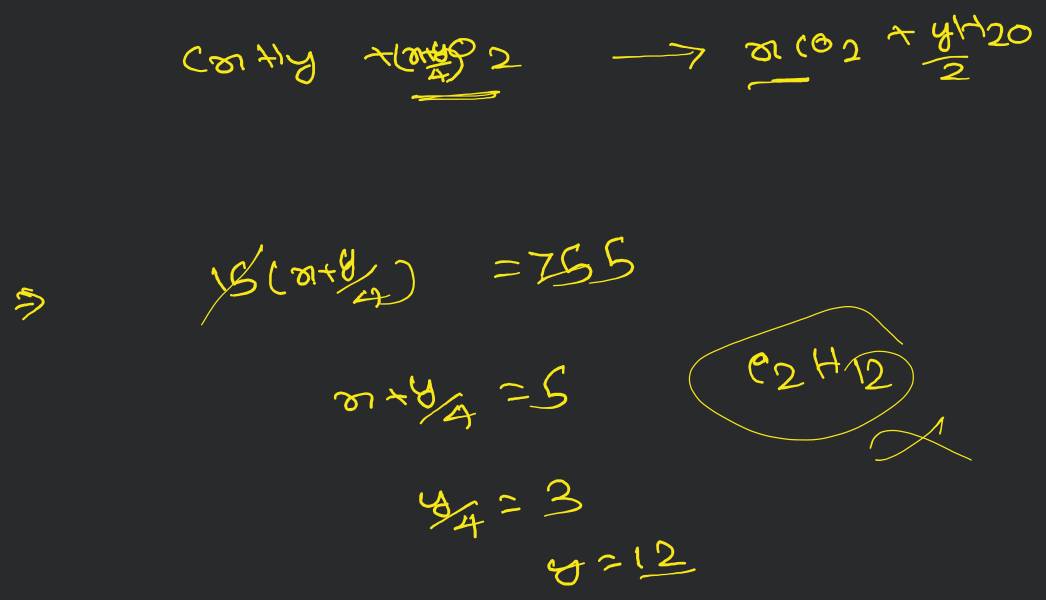 CxHy + (x+y/4) O2 → xCO2 + yH2O/2
⇒ 15(x+y/4) = 755
x+y/4 = 5
C2H12
y/4 = 3
y = 12